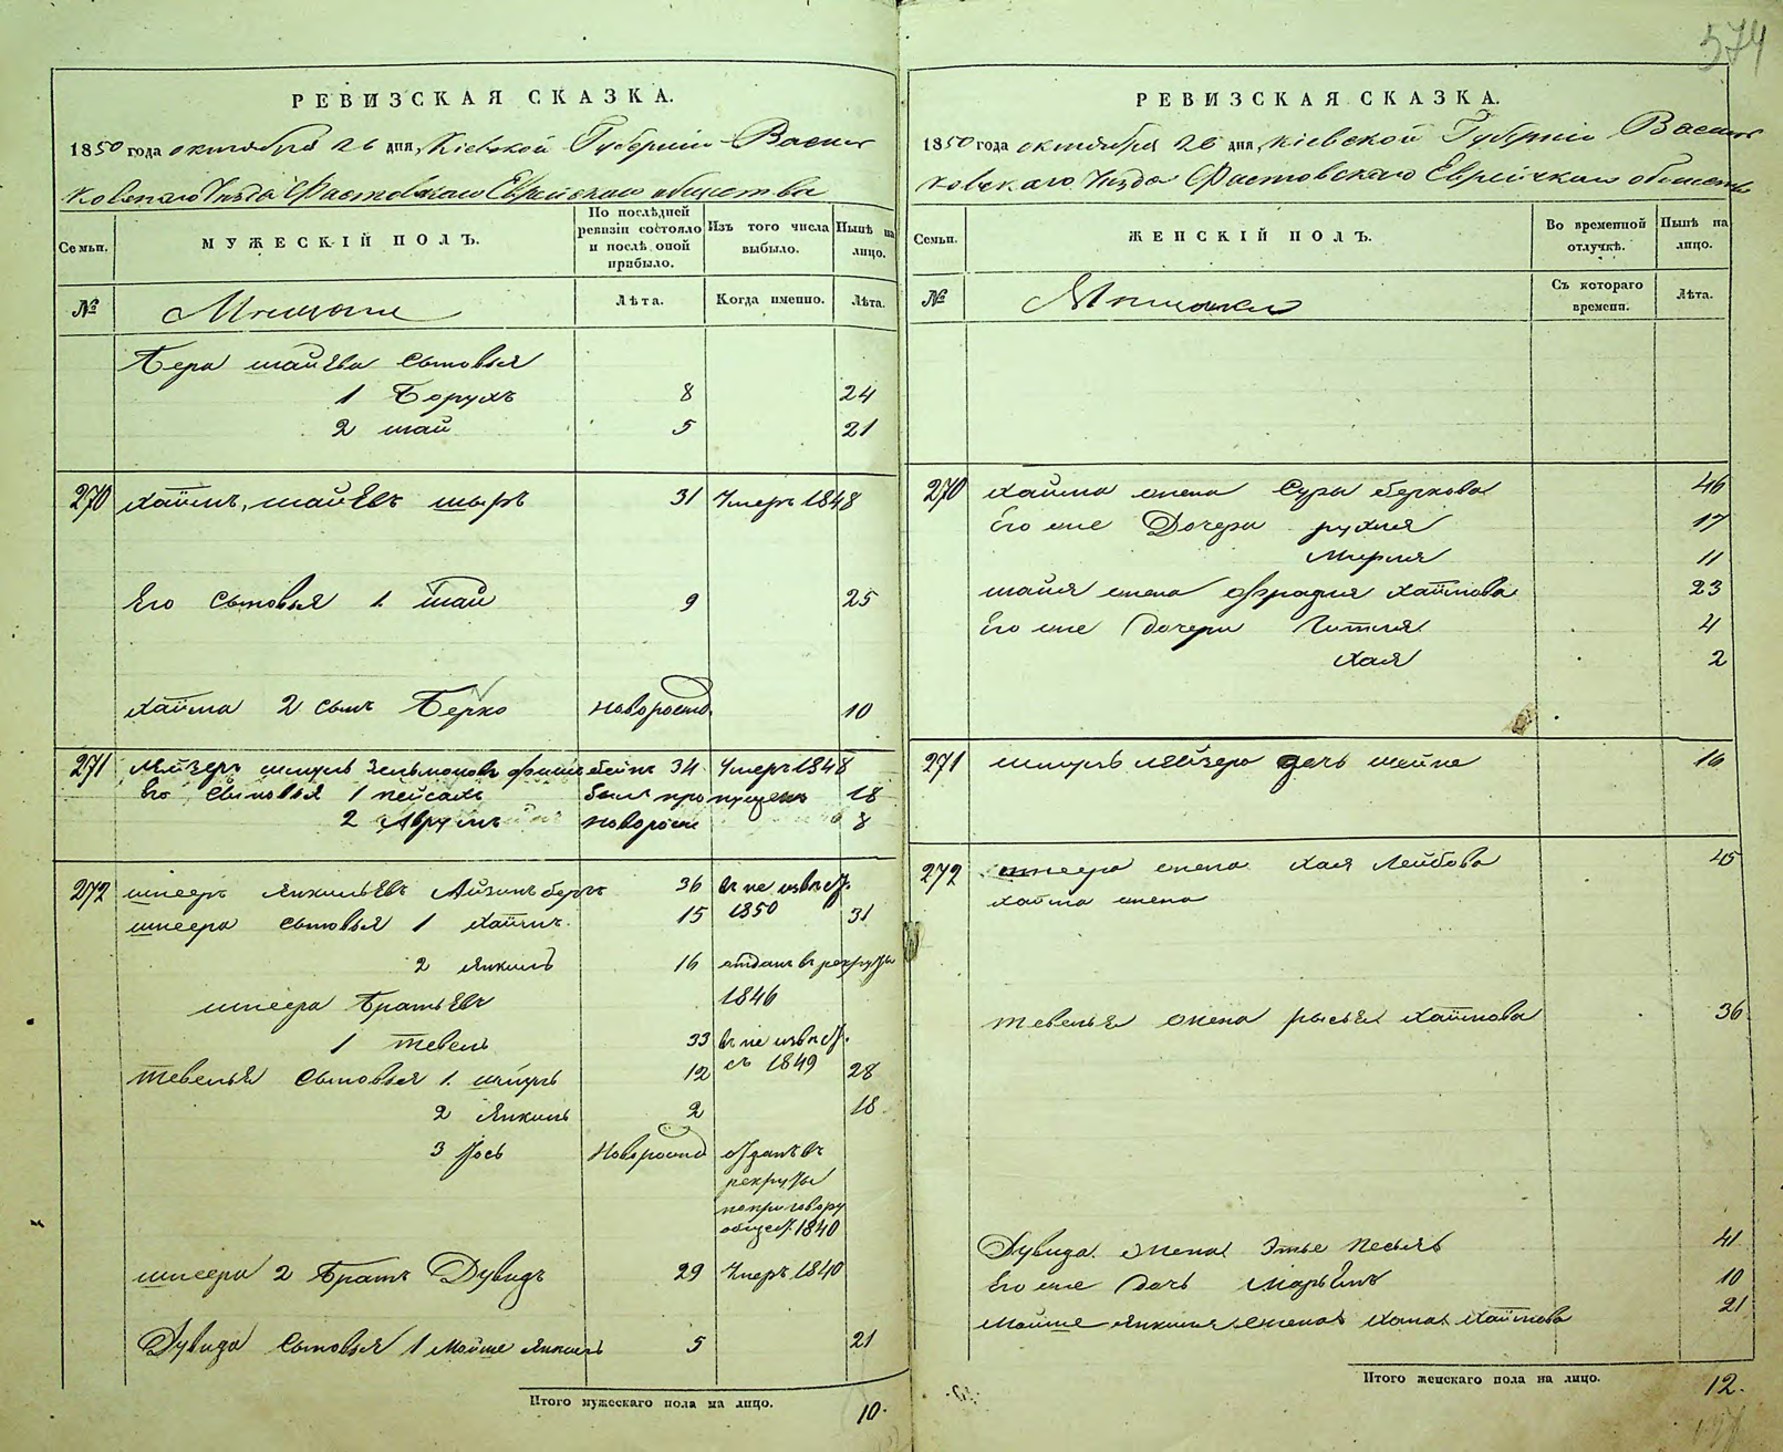 574
РЕВИЗСКАЯ СКАЗКА.
1850 года октября 26 дня, Кіевской Губерніи Василь
ковскаго Уезда Фастовскаго Еврейскаго общества
Семьи.
МУЖЕСКІЙ ПОЛЪ.
По послѣдней ревизіи состояло и послѣ оной прибыло.
Изъ того числа выбыло.
Нынѣ на лицо.
№
Мещане
Лѣта.
Когда именно.
Лѣта.
Бера шаиева сыновья
1 Борухъ 8 24
2 шай 5 21
270 хаимъ, шаиевъ 31 Умеръ 1848
Его сыновья 1 шаи 9 25
хаима 2 сынъ Берко новорожд. 10
271 Лейзеръ шмуль Зельмановъ 34 Умеръ 1848
Его сыновья 1 пейсахъ былъ пропущенъ 18
2 Аврумъ новорож 8
272 шнееръ янкильевъ Айзинбергъ 36 въ не извѣст.
1850
шнеера сыновья 1 хаимъ 15 31
2 янкиль 16 отданъ в рекруты
1846
шнеера Братьевъ
1 тевель 33 въ не извѣст.
съ 1849
тевелья сыновья 1 шмуль 12 28
2 янкиль 2 18
3 Іось Новорожд отданъ въ
рекруты
по приговору
общест. 1840
шнеера 2 Братъ Дувидъ 29 Умеръ 1840
Дувида сыновья 1 Мойше янкиль 5 21
Итого мужескаго пола на лицо. 10.
РЕВИЗСКАЯ СКАЗКА.
1850 года октября 26 дня, Кіевской Губерніи Василь
ковскаго Уезда Фастовскаго Еврейскаго общества
Семьи.
ЖЕНСКІЙ ПОЛЪ.
Во временной отлучкѣ.
Нынѣ на лицо.
№
Мещанки
Съ котораго времени.
Лѣта.
270 хаима жена Сура беркова 46
Его же Дочери рухля 17
Мирля 11
шаия жена фрадля хаимова 23
Его же Дочери Гитля 4
хая 2
271 шмуль лейзера дочь шейне 16
272 шнеера жена хая Лейбова 45
хаима жена
тевелья жена рисья хаимова 36
Дувида жена Этье песьяъ 41
Его же дочь Марьямъ 10
Мойше янкиля жена хана хаимова 21
Итого женскаго пола на лицо. 12.